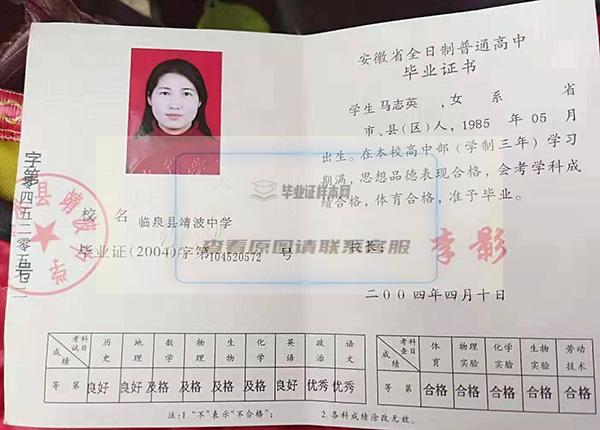 安徽省全日制普通高中
毕业证书
学生马志英 ，女 系 省
市、县(区)人，1985 年 05 月
出生。在本校高中部（学制三年）学习
期满，思想品德表现合格，会考学科成
绩合格，体育合格，准予毕业。
校长：
李影
二00四年四月十日
校 名 临泉县靖波中学
毕业证(2004)字第104520572 号
毕业证样本网
查看原图请联系客服
考试科目 历史 地理 数学 物理 生物 化学 英语 政治 语文
成绩
等 第 良好 良好 及格 及格 及格 及格 良好 优秀 优秀
考查科目 体育 物理实验 化学实验 生物实验 劳动技术
成绩
等 第 合格 合格 合格 合格 合格
注:1.“不”表示“不合格”； 2.各科成绩涂改无效。